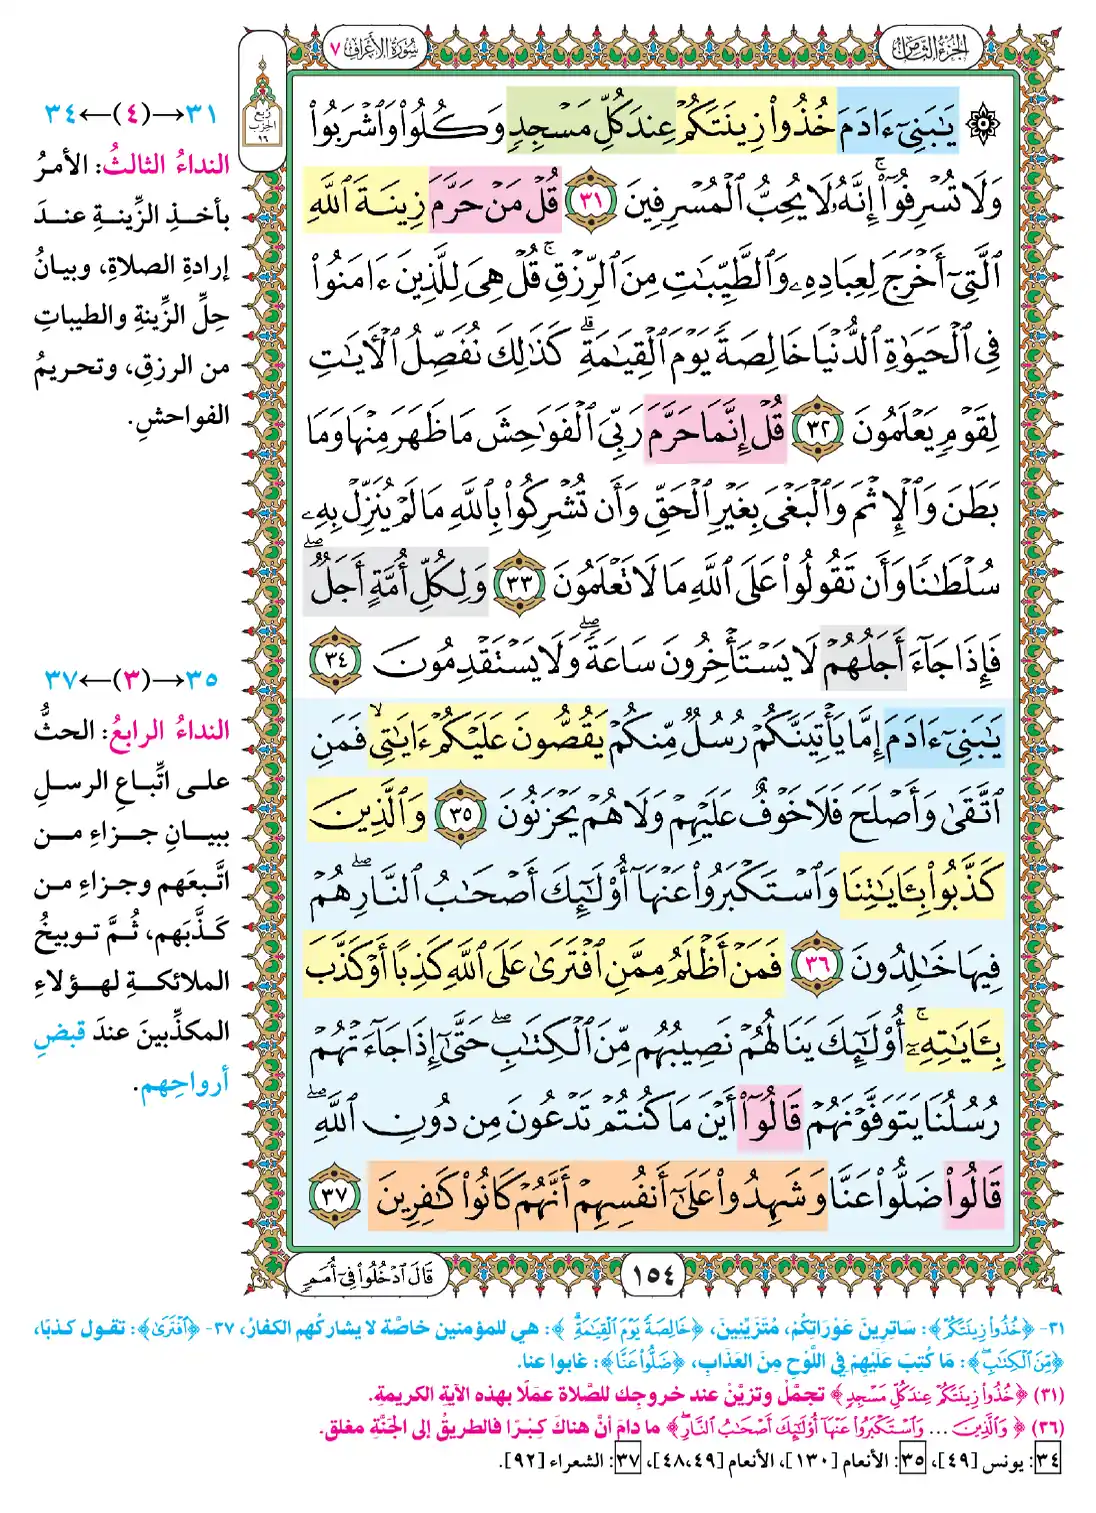 الجزء الثامن
سورة الأعراف ٧
ربع
الحزب
١٦
يَٰبَنِيٓ ءَادَمَ خُذُوا۟ زِينَتَكُمْ عِندَ كُلِّ مَسْجِدٍ وَكُلُوا۟ وَٱشْرَبُوا۟
وَلَا تُسْرِفُوٓا۟ ۚ إِنَّهُۥ لَا يُحِبُّ ٱلْمُسْرِفِينَ ٣١ قُلْ مَنْ حَرَّمَ زِينَةَ ٱللَّهِ
ٱلَّتِىٓ أَخْرَجَ لِعِبَادِهِۦ وَٱلطَّيِّبَٰتِ مِنَ ٱلرِّزْقِ ۚ قُلْ هِىَ لِلَّذِينَ ءَامَنُوا۟
فِى ٱلْحَيَوٰةِ ٱلدُّنْيَا خَالِصَةً يَوْمَ ٱلْقِيَٰمَةِ ۗ كَذَٰلِكَ نُفَصِّلُ ٱلْءَايَٰتِ
لِقَوْمٍ يَعْلَمُونَ ٣٢ قُلْ إِنَّمَا حَرَّمَ رَبِّىَ ٱلْفَوَٰحِشَ مَا ظَهَرَ مِنْهَا وَمَا
بَطَنَ وَٱلْإِثْمَ وَٱلْبَغْىَ بِغَيْرِ ٱلْحَقِّ وَأَن تُشْرِكُوا۟ بِٱللَّهِ مَا لَمْ يُنَزِّلْ بِهِۦ
سُلْطَٰنًا وَأَن تَقُولُوا۟ عَلَى ٱللَّهِ مَا لَا تَعْلَمُونَ ٣٣ وَلِكُلِّ أُمَّةٍ أَجَلٌ ۖ
فَإِذَا جَآءَ أَجَلُهُمْ لَا يَسْتَأْخِرُونَ سَاعَةً ۖ وَلَا يَسْتَقْدِمُونَ ٣٤
يَٰبَنِىٓ ءَادَمَ إِمَّا يَأْتِيَنَّكُمْ رُسُلٌ مِّنكُمْ يَقُصُّونَ عَلَيْكُمْ ءَايَٰتِى ۙ فَمَنِ
ٱتَّقَىٰ وَأَصْلَحَ فَلَا خَوْفٌ عَلَيْهِمْ وَلَا هُمْ يَحْزَنُونَ ٣٥ وَٱلَّذِينَ
كَذَّبُوا۟ بِـَٔايَٰتِنَا وَٱسْتَكْبَرُوا۟ عَنْهَآ أُو۟لَٰٓئِكَ أَصْحَٰبُ ٱلنَّارِ ۖ هُمْ
فِيهَا خَٰلِدُونَ ٣٦ فَمَنْ أَظْلَمُ مِمَّنِ ٱفْتَرَىٰ عَلَى ٱللَّهِ كَذِبًا أَوْ كَذَّبَ
بِـَٔايَٰتِهِۦٓ ۚ أُو۟لَٰٓئِكَ يَنَالُهُمْ نَصِيبُهُم مِّنَ ٱلْكِتَٰبِ ۖ حَتَّىٰٓ إِذَا جَآءَتْهُمْ
رُسُلُنَا يَتَوَفَّوْنَهُمْ قَالُوٓا۟ أَيْنَ مَا كُنتُمْ تَدْعُونَ مِن دُونِ ٱللَّهِ ۖ
قَالُوا۟ ضَلُّوا۟ عَنَّا وَشَهِدُوا۟ عَلَىٰٓ أَنفُسِهِمْ أَنَّهُمْ كَانُوا۟ كَٰفِرِينَ ٣٧
١٥٤
قَالَ ٱدْخُلُوا۟ فِىٓ أُمَمٍ
٣١→(٤)←٣٤
النداءُ الثالثُ: الأمرُ
بأخذِ الزِّينةِ عندَ
إرادةِ الصلاةِ، وبيانُ
حِلِّ الزِّينةِ والطيباتِ
من الرزقِ، وتحريمُ
الفواحشِ.
٣٥→(٣)←٣٧
النداءُ الرابعُ: الحثُّ
على اتِّباعِ الرسلِ
ببيانِ جزاءِ من
اتَّبعَهم وجزاءِ من
كَذَّبَهم، ثُمَّ توبيخُ
الملائكةِ لهؤلاءِ
المكذِّبينَ عندَ قبضِ
أرواحِهم.
٣١- ﴿خُذُوا۟ زِينَتَكُمْ﴾: سَاتِرِينَ عَوْرَاتِكُمْ، مُتَزَيِّنِينَ، ﴿خَالِصَةً يَوْمَ ٱلْقِيَٰمَةِ ۗ﴾: هي للمؤمنين خاصَّة لا يشاركُهم الكفارُ، ٣٧- ﴿ٱفْتَرَىٰ﴾: تقول كذبًا،
﴿مِّنَ ٱلْكِتَٰبِ ۖ﴾: مَا كُتِبَ عَلَيْهِمْ فِي اللَّوْحِ مِنَ العَذَابِ، ﴿ضَلُّوا۟ عَنَّا﴾: غابوا عنا.
(٣١) ﴿خُذُوا۟ زِينَتَكُمْ عِندَ كُلِّ مَسْجِدٍ﴾ تجمَّل وتزيَّنْ عند خروجِك للصَّلاة عملًا بهذه الآيةِ الكريمةِ.
(٣٦) ﴿وَٱلَّذِينَ ... وَٱسْتَكْبَرُوا۟ عَنْهَآ أُو۟لَٰٓئِكَ أَصْحَٰبُ ٱلنَّارِ ۖ﴾ ما دامَ أنَّ هناكَ كِبْرًا فالطريقُ إلى الجَنَّةِ مغلق.
٣٤: يونس [٤٩]، ٣٥: الأنعام [١٣٠]، الأنعام [٤٨،٤٩]، ٣٧: الشعراء [٩٢].